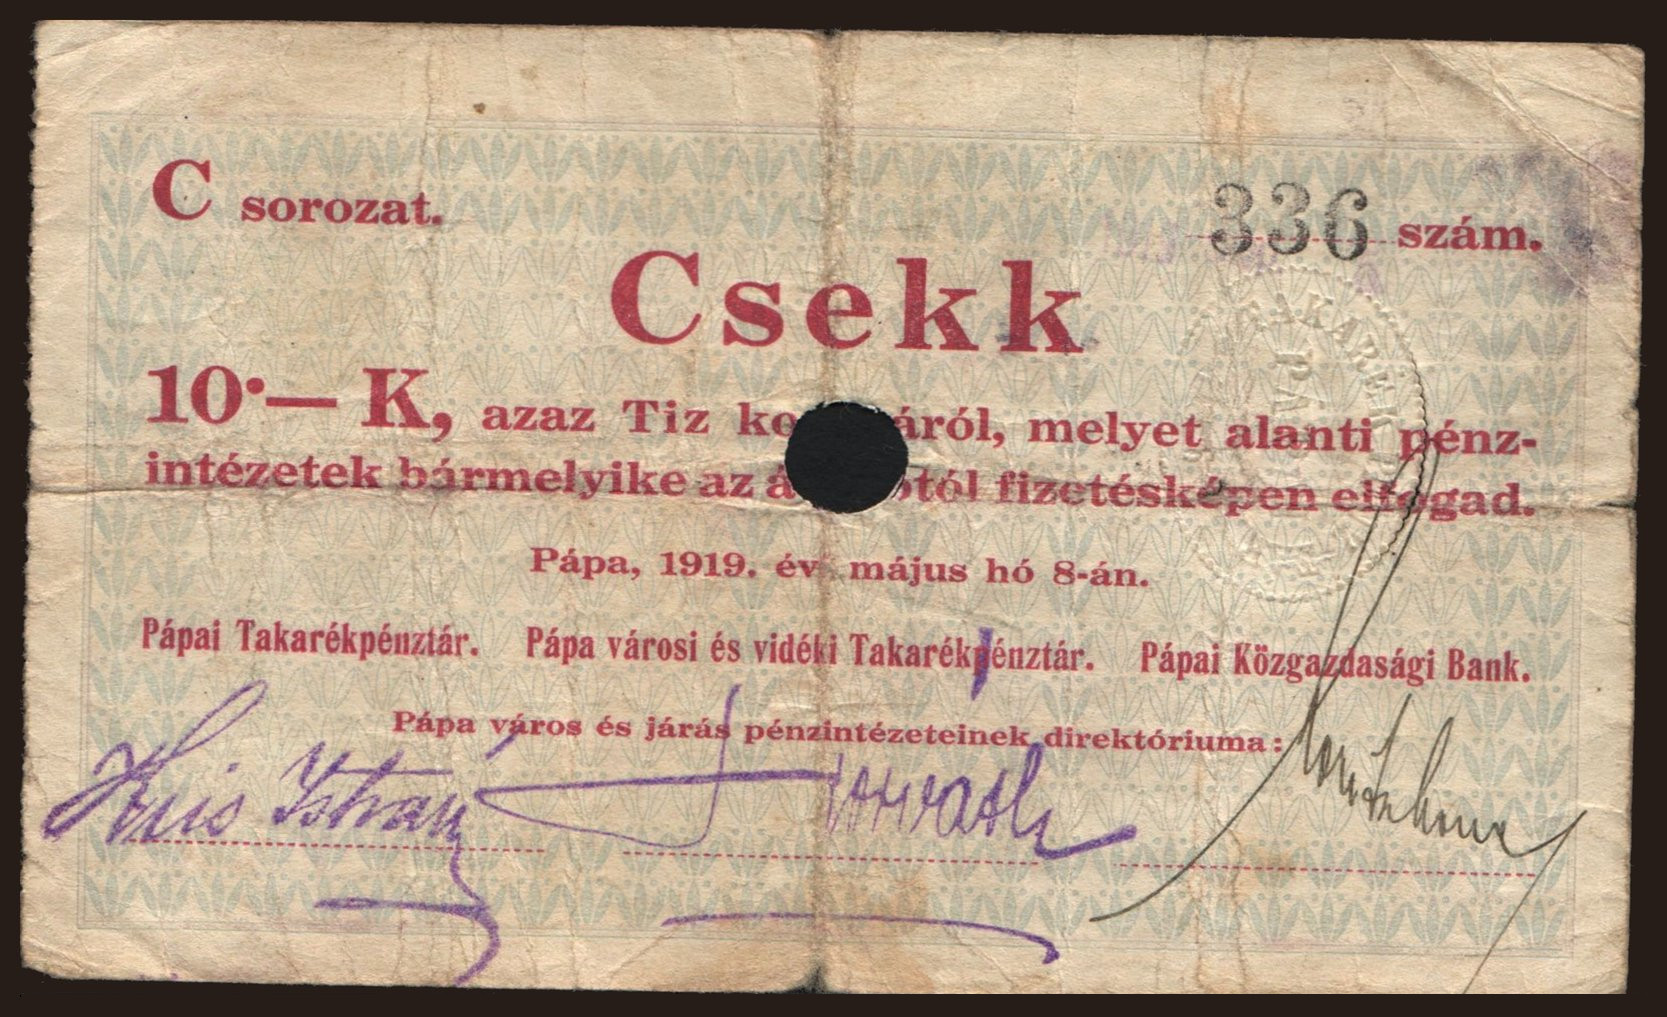 C sorozat. 336 szám.
Csekk
10·— K, azaz Tiz ko áról, melyet alanti pénz-
intézetek bármelyike az á tól fizetésképen elfogad.
Pápa, 1919. év május hó 8-án.
Pápai Takarékpénztár. Pápa városi és vidéki Takarékpénztár. Pápai Közgazdasági Bank.
Pápa város és járás pénzintézeteinek direktóriuma:
Kis István Horváth